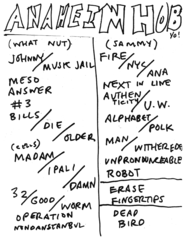 ANAHEIM HOB
YO!
(WHAT NUT)
JOHNNY/
MUSK JAIL
MESO
ANSWER
#3
BILLS/
DIE/
OLDER
MADAM/
IPALI/
DAMN
32/
GOOD/
WORM
OPERATION
(SAMMY)
FIRE/
NYC/
ANA
NEXT IN LINE
AUTHEN
TICITY/
U.W.
ALPHABET/
POLK
MAN/
WITHERED
UNPRONOUNCEABLE
ROBOT
ERASE
FINGERTIPS
DEAD
BIRD